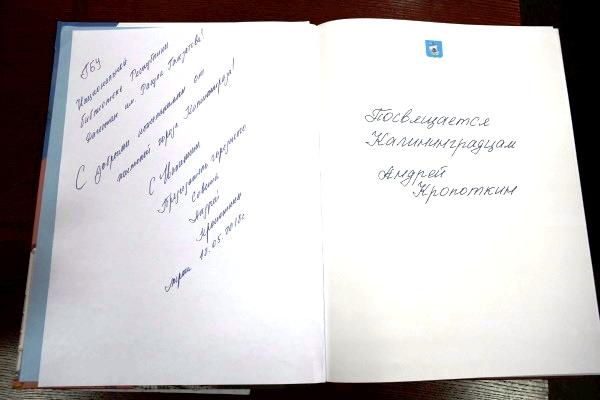 ГБУ
Национальной
библиотеке Республики
Дагестан им. Расула Гамзатова!
С добрыми пожеланиями от
жителей города Калининграда!
С Уважением
Председатель городского
Совета
Андрей
Кропоткин
13.05.2018г.
Посвящается
Калининградцам
Андрей
Кропоткин